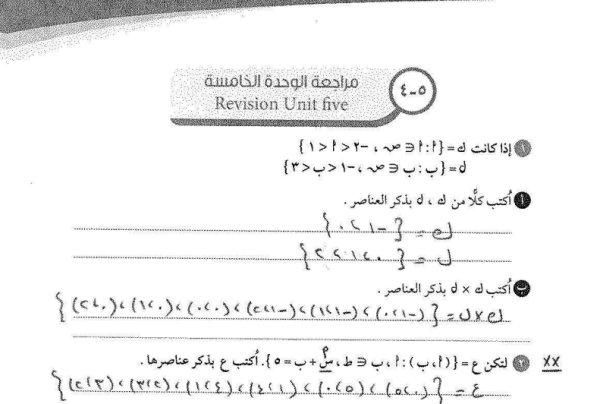 مراجعة الوحدة الخامسة
Revision Unit five
٥-٤
١ إذا كانت ك = {أ : أ ∈ صـ ، -٢ < أ < ١}
ل = {ب : ب ∈ صـ ، -١ < ب < ٣}
أ أكتب كلًّا من ك ، ل بذكر العناصر .
ك = {-١ ، ٠}
ل = {٠ ، ١ ، ٢}
ب أكتب ك × ل بذكر العناصر .
ك × ل = {(-١ ، ٠) ، (-١ ، ١) ، (-١ ، ٢) ، (٠ ، ٠) ، (٠ ، ١) ، (٠ ، ٢)}
XX ٢ لتكن ع = {(أ ، ب) : أ ، ب ∈ ط ، أ + ب = ٥}. أكتب ع بذكر عناصرها .
ع = {(٠ ، ٥) ، (٥ ، ٠) ، (١ ، ٤) ، (٤ ، ١) ، (٢ ، ٣) ، (٣ ، ٢)}